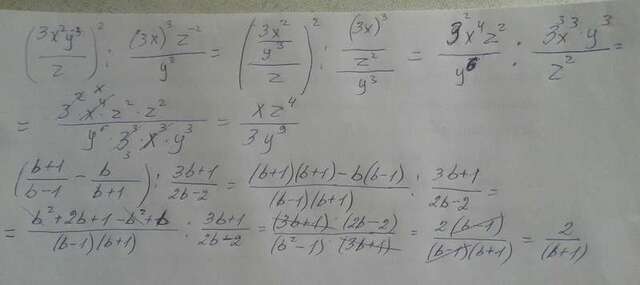 (3x²y⁻³/z)² : (3x)³z⁻²/y² = ((3x²/y³)/z)² : ((3x)³/z²)/y³ = 3²x⁴z²/y⁶ : 3³x³·y³/z² =
= 3²·x⁴·z²·z²/y⁶·3³·x³·y³ = xz⁴/3y⁹
(b+1/b-1 - b/b+1) : 3b+1/2b-2 = (b+1)(b+1)-b(b-1)/(b-1)(b+1) : 3b+1/2b-2 =
= b²+2b+1-b²+b/(b-1)(b+1) : 3b+1/2b-2 = (3b+1)·(2b-2)/(b²-1)·(3b+1) = 2(b-1)/(b-1)(b+1) = 2/(b+1)